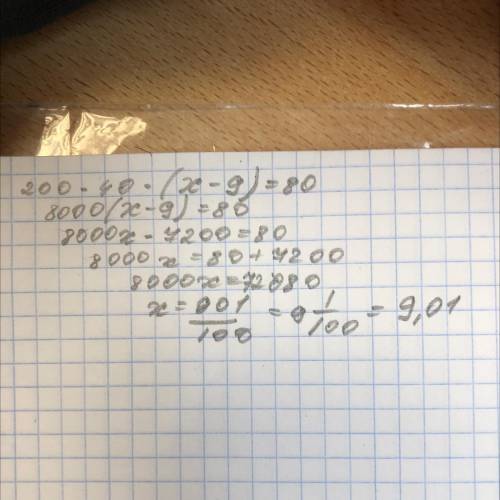 200 · 40 · (x - 9) = 80
8000(x-9) = 80
8000x - 7200 = 80
8000x = 80 + 7200
8000x = 72080
x = 901/100 = 9 1/100 = 9,01